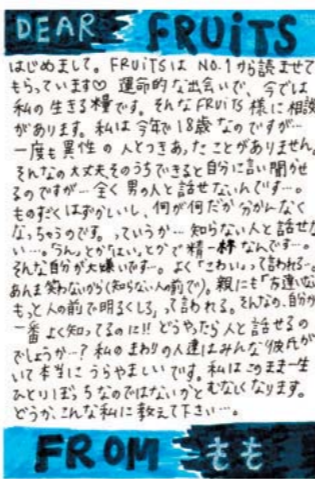 DEAR FRUiTS
はじめまして。FRUiTSは NO.1から読ませて
もらっています♡ 運命的な出会いで、今では
私の生きる糧です。そんなFRUiTS様に相談
があります。私は今年で18歳なのですが…
一度も異性の人とつきあったことがありません。
そんなの大丈夫、そのうちできると自分に言い聞かせ
るのですが…全く男の人と話せないんです…。
ものすごくはずかしいし、何が何だか分かんなく
なっちゃうのです。っていうか…知らない人と話せな
い…。「うん」とか「はい」とかで精一杯なんです…。
そんな自分が大嫌いです…。よく「こわい」って言われる…。
あんま笑わないから(知らない人の前で)。親にも「
もっと人の前で明るくしろ」って言われる。そんなの、自分が
一番よく知ってるのに!! どうやったら人と話せるの
でしょうか…? 私のまわりの人達はみんな彼氏が
いて本当にうらやましいです。私はこのまま一生
ひとりぼっちなのではないかとむなしくなります。
どうか、こんな私に教えて下さい…。
FROM もも